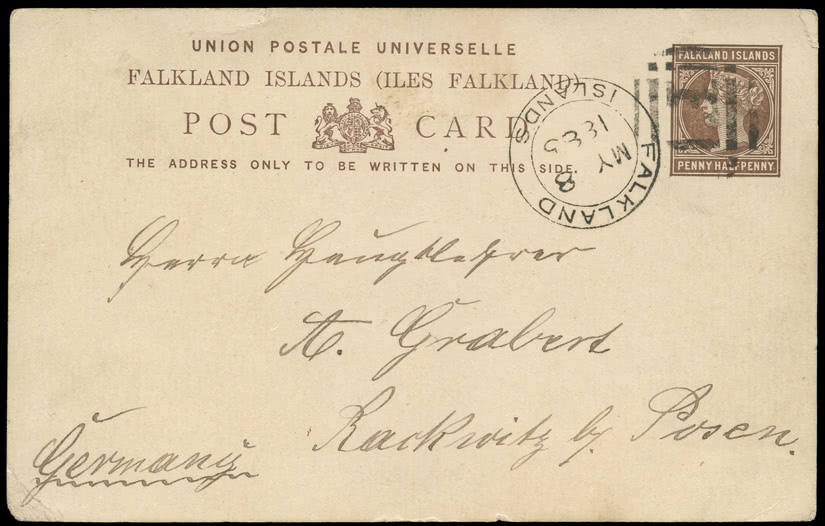 UNION POSTALE UNIVERSELLE
FALKLAND ISLANDS (ILES FALKLAND)
POST CARD
THE ADDRESS ONLY TO BE WRITTEN ON THIS SIDE.
FALKLAND ISLANDS
PENNY HALFPENNY
FALKLAND ISLANDS
MY 8
Herrn Hauptlehrer
A. Grabert
Rackwitz b/ Posen.
Germany